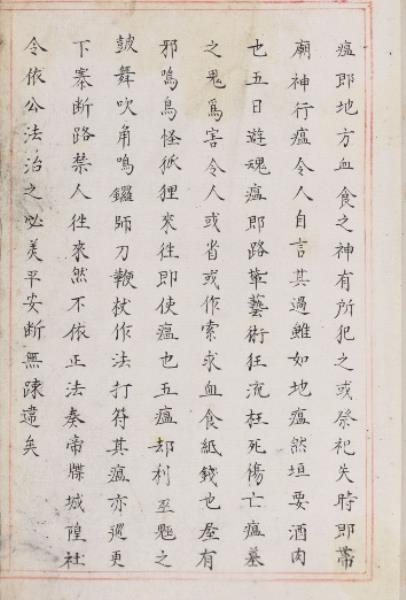 瘟即地方血食之神有所犯之或祭祀失時即帶
廟神行瘟令人自言其過雖如地瘟然垣要酒肉
也五日遊魂瘟即路軰藝術狂流枉死傷亡瘟墓
之鬼爲害令人或省或作索求血食紙錢也屋有
邪鳴鳥怪狐狸來徃即使瘟也五瘟却利巫之
鼓舞吹角鳴鑼師刀鞭杖作法打符其瘟亦更
下寨斷路禁人徃來然不依正法奏帝牒城隍社
令依公法治之必美平安斷無踈違矣